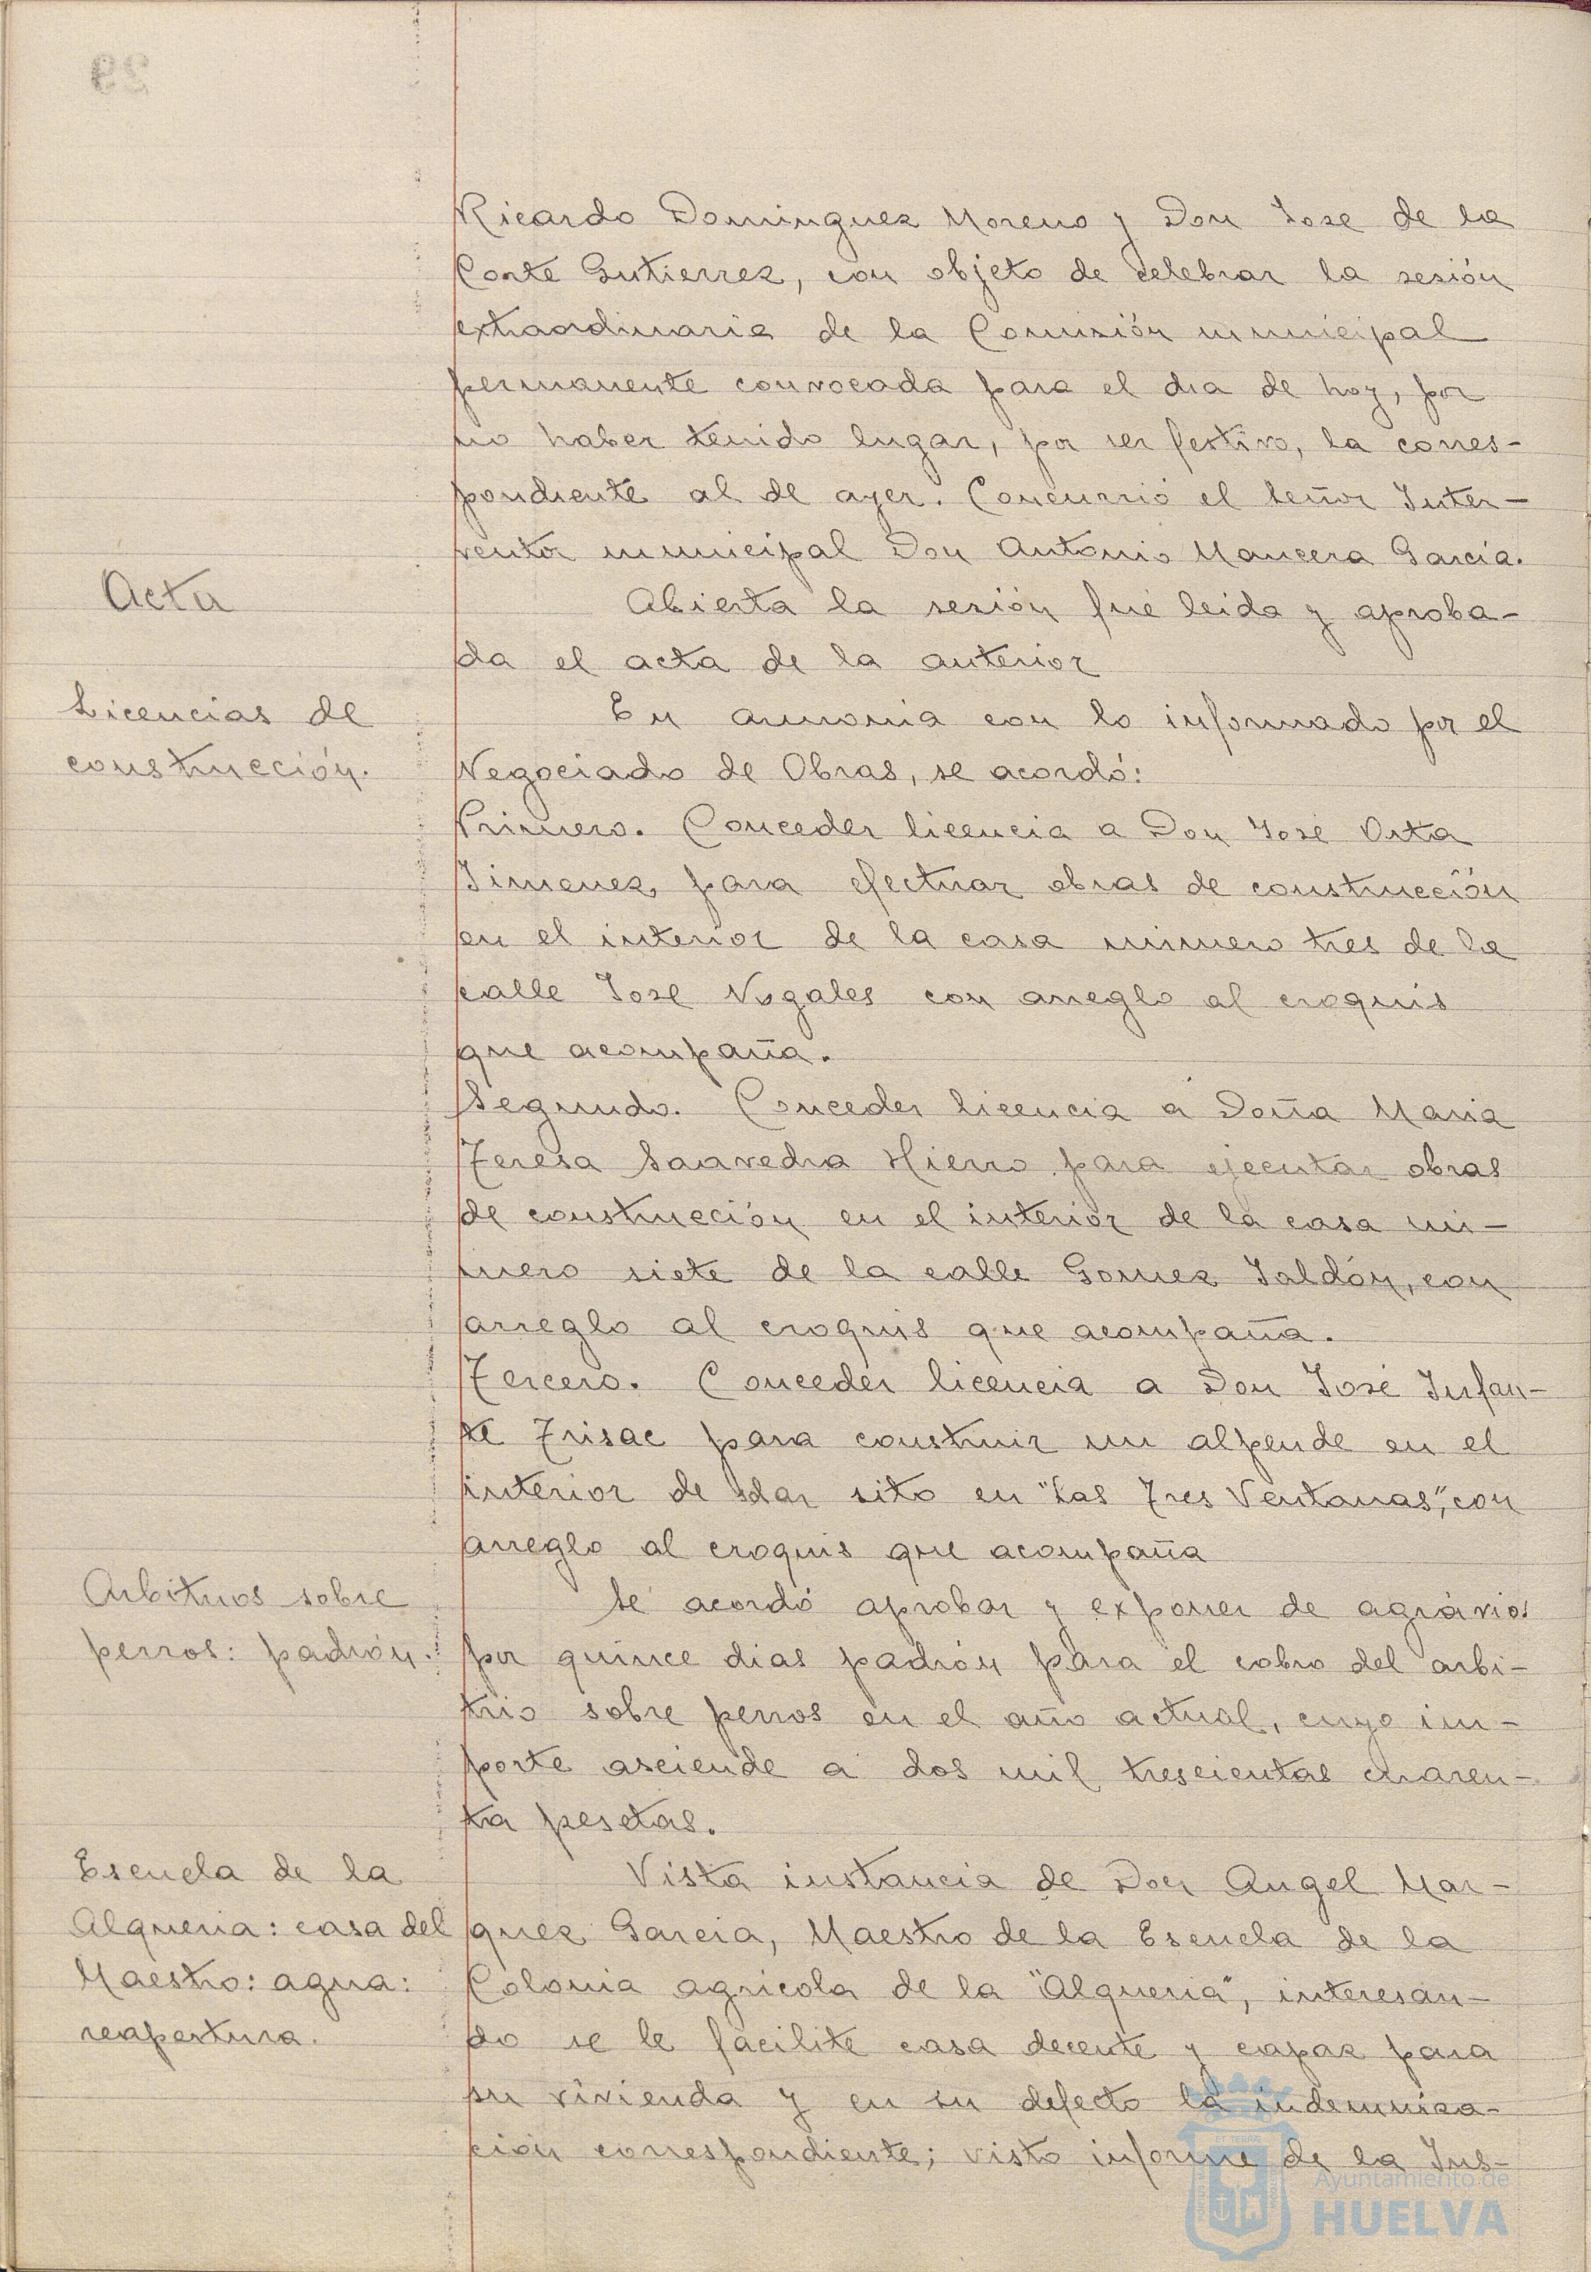 Ricardo Dominguez Moreno y Don Jose de la
Corte Gutierrez, con objeto de celebrar la sesión
extraordinaria de la Comisión municipal
permanente convocada para el dia de hoy, por
no haber tenido lugar, por ser festivo, la corres-
pondiente al de ayer. Concurrió el Señor Inter-
ventor municipal Don Antonio Mancera García.
Acta
Abierta la sesión fué leida y aproba-
da el acta de la anterior
Licencias de
construcción.
En armonia con lo informado por el
Negociado de Obras, se acordó:
Primero. Conceder licencia a Don José Orta
Jimenez, para efectuar obras de construcción
en el interior de la casa número tres de la
calle Jose Nogales con arreglo al croquis
que acompaña.
Segundo. Conceder licencia a Doña Maria
Teresa Saavedra Hierro para ejecutar obras
de construcción en el interior de la casa nú-
mero siete de la calle Gomez Jaldón, con
arreglo al croquis que acompaña.
Tercero. Conceder licencia a Don José Infan-
te Trisac para construir un alpende en el
interior de solar sito en "Las Tres Ventanas", con
arreglo al croquis que acompaña
Arbitrios sobre
perros: padrón.
Se acordó aprobar y exponer de agravios
por quince dias padrón para el cobro del arbi-
trio sobre perros en el año actual, cuyo im-
porte asciende a dos mil trescientas cuaren-
ta pesetas.
Escuela de la
Alqueria: casa del
Maestro: agua:
reapertura.
Vista instancia de Don Angel Mar-
quez Garcia, Maestro de la Escuela de la
Colonia agricola de la "Alqueria", interesan-
do se le facilite casa decente y capaz para
su vivienda y en su defecto la indemniza-
ción correspondiente; visto informe de la Ins-
Ayuntamiento de
HUELVA